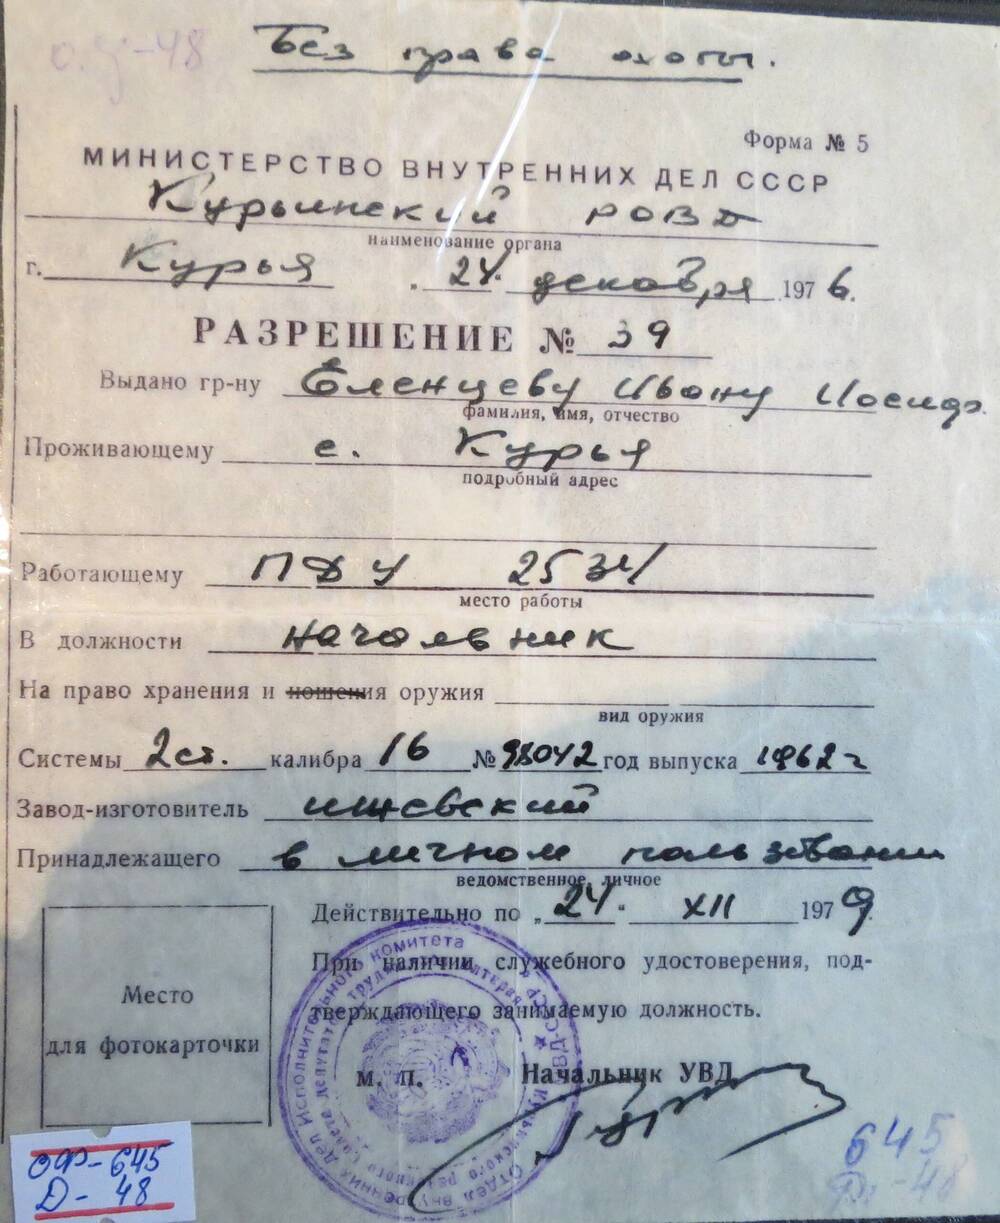 Без права охоты.
Форма № 5
МИНИСТЕРСТВО ВНУТРЕННИХ ДЕЛ СССР
Курьинский РОВД
наименование органа
г. Курья „24“ декабря 1976.
РАЗРЕШЕНИЕ № 39
Выдано гр-ну Еленцеву Ивану Иосиф.
фамилия, имя, отчество
Проживающему с. Курья
подробный адрес
Работающему ПДУ
место работы
В должности начальник
На право хранения и ношения оружия
вид оружия
Системы 2ст. калибра 16 № 98042 год выпуска 1962 г
Завод-изготовитель ижевский
Принадлежащего в личном пользовании
ведомственное, личное
Действительно по „24“ XII 1979.
При наличии служебного удостоверения, под-
тверждающего занимаемую должность.
Место
для фотокарточки
м. п.
Начальник УВД
ОФ-645
Д-48
645